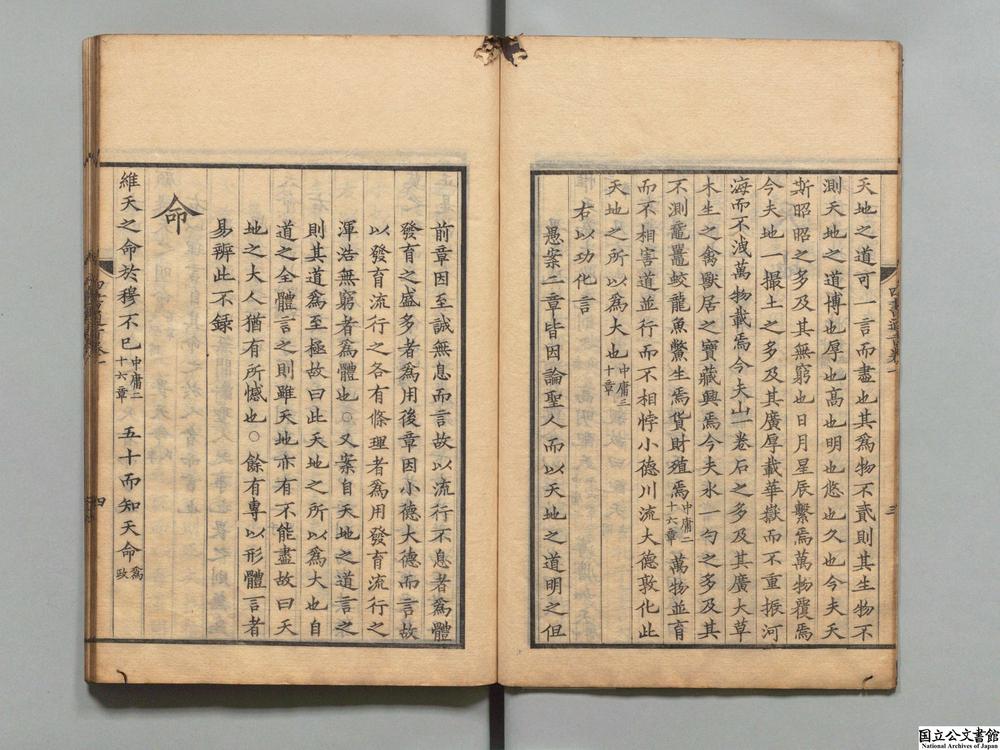 天地之道可一言而盡也其爲物不貳則其生物不
測天地之道博也厚也高也明也悠也久也今夫天
斯昭昭之多及其無窮也日月星辰繫焉萬物覆焉
今夫地一撮土之多及其廣厚載華嶽而不重振河
海而不洩萬物載焉今夫山一卷石之多及其廣大草
木生之禽獸居之寶藏興焉今夫水一勺之多及其
不測黿鼉蛟龍魚鱉生焉貨財殖焉中庸二十六章 萬物並育
而不相害道並行而不相悖小德川流大德敦化此
天地之所以爲大也中庸三十章
右以功化言
愚案二章皆因論聖人而以天地之道明之但
前章因至誠無息而言故以流行不息者爲體
發育之盛多者爲用後章因小德大德而言故
以發育流行之各有條理者爲用發育流行之
渾浩無窮者爲體也○又案自天地之道言之
則其道爲至極故曰此天地之所以爲大也自
道之全體言之則雖天地亦有不能盡故曰天
地之大人猶有所憾也○餘有專以形體言者
易辨此不錄
命
維天之命於穆不已中庸二十六章 五十而知天命爲政
三
四
国立公文書館
National Archives of Japan